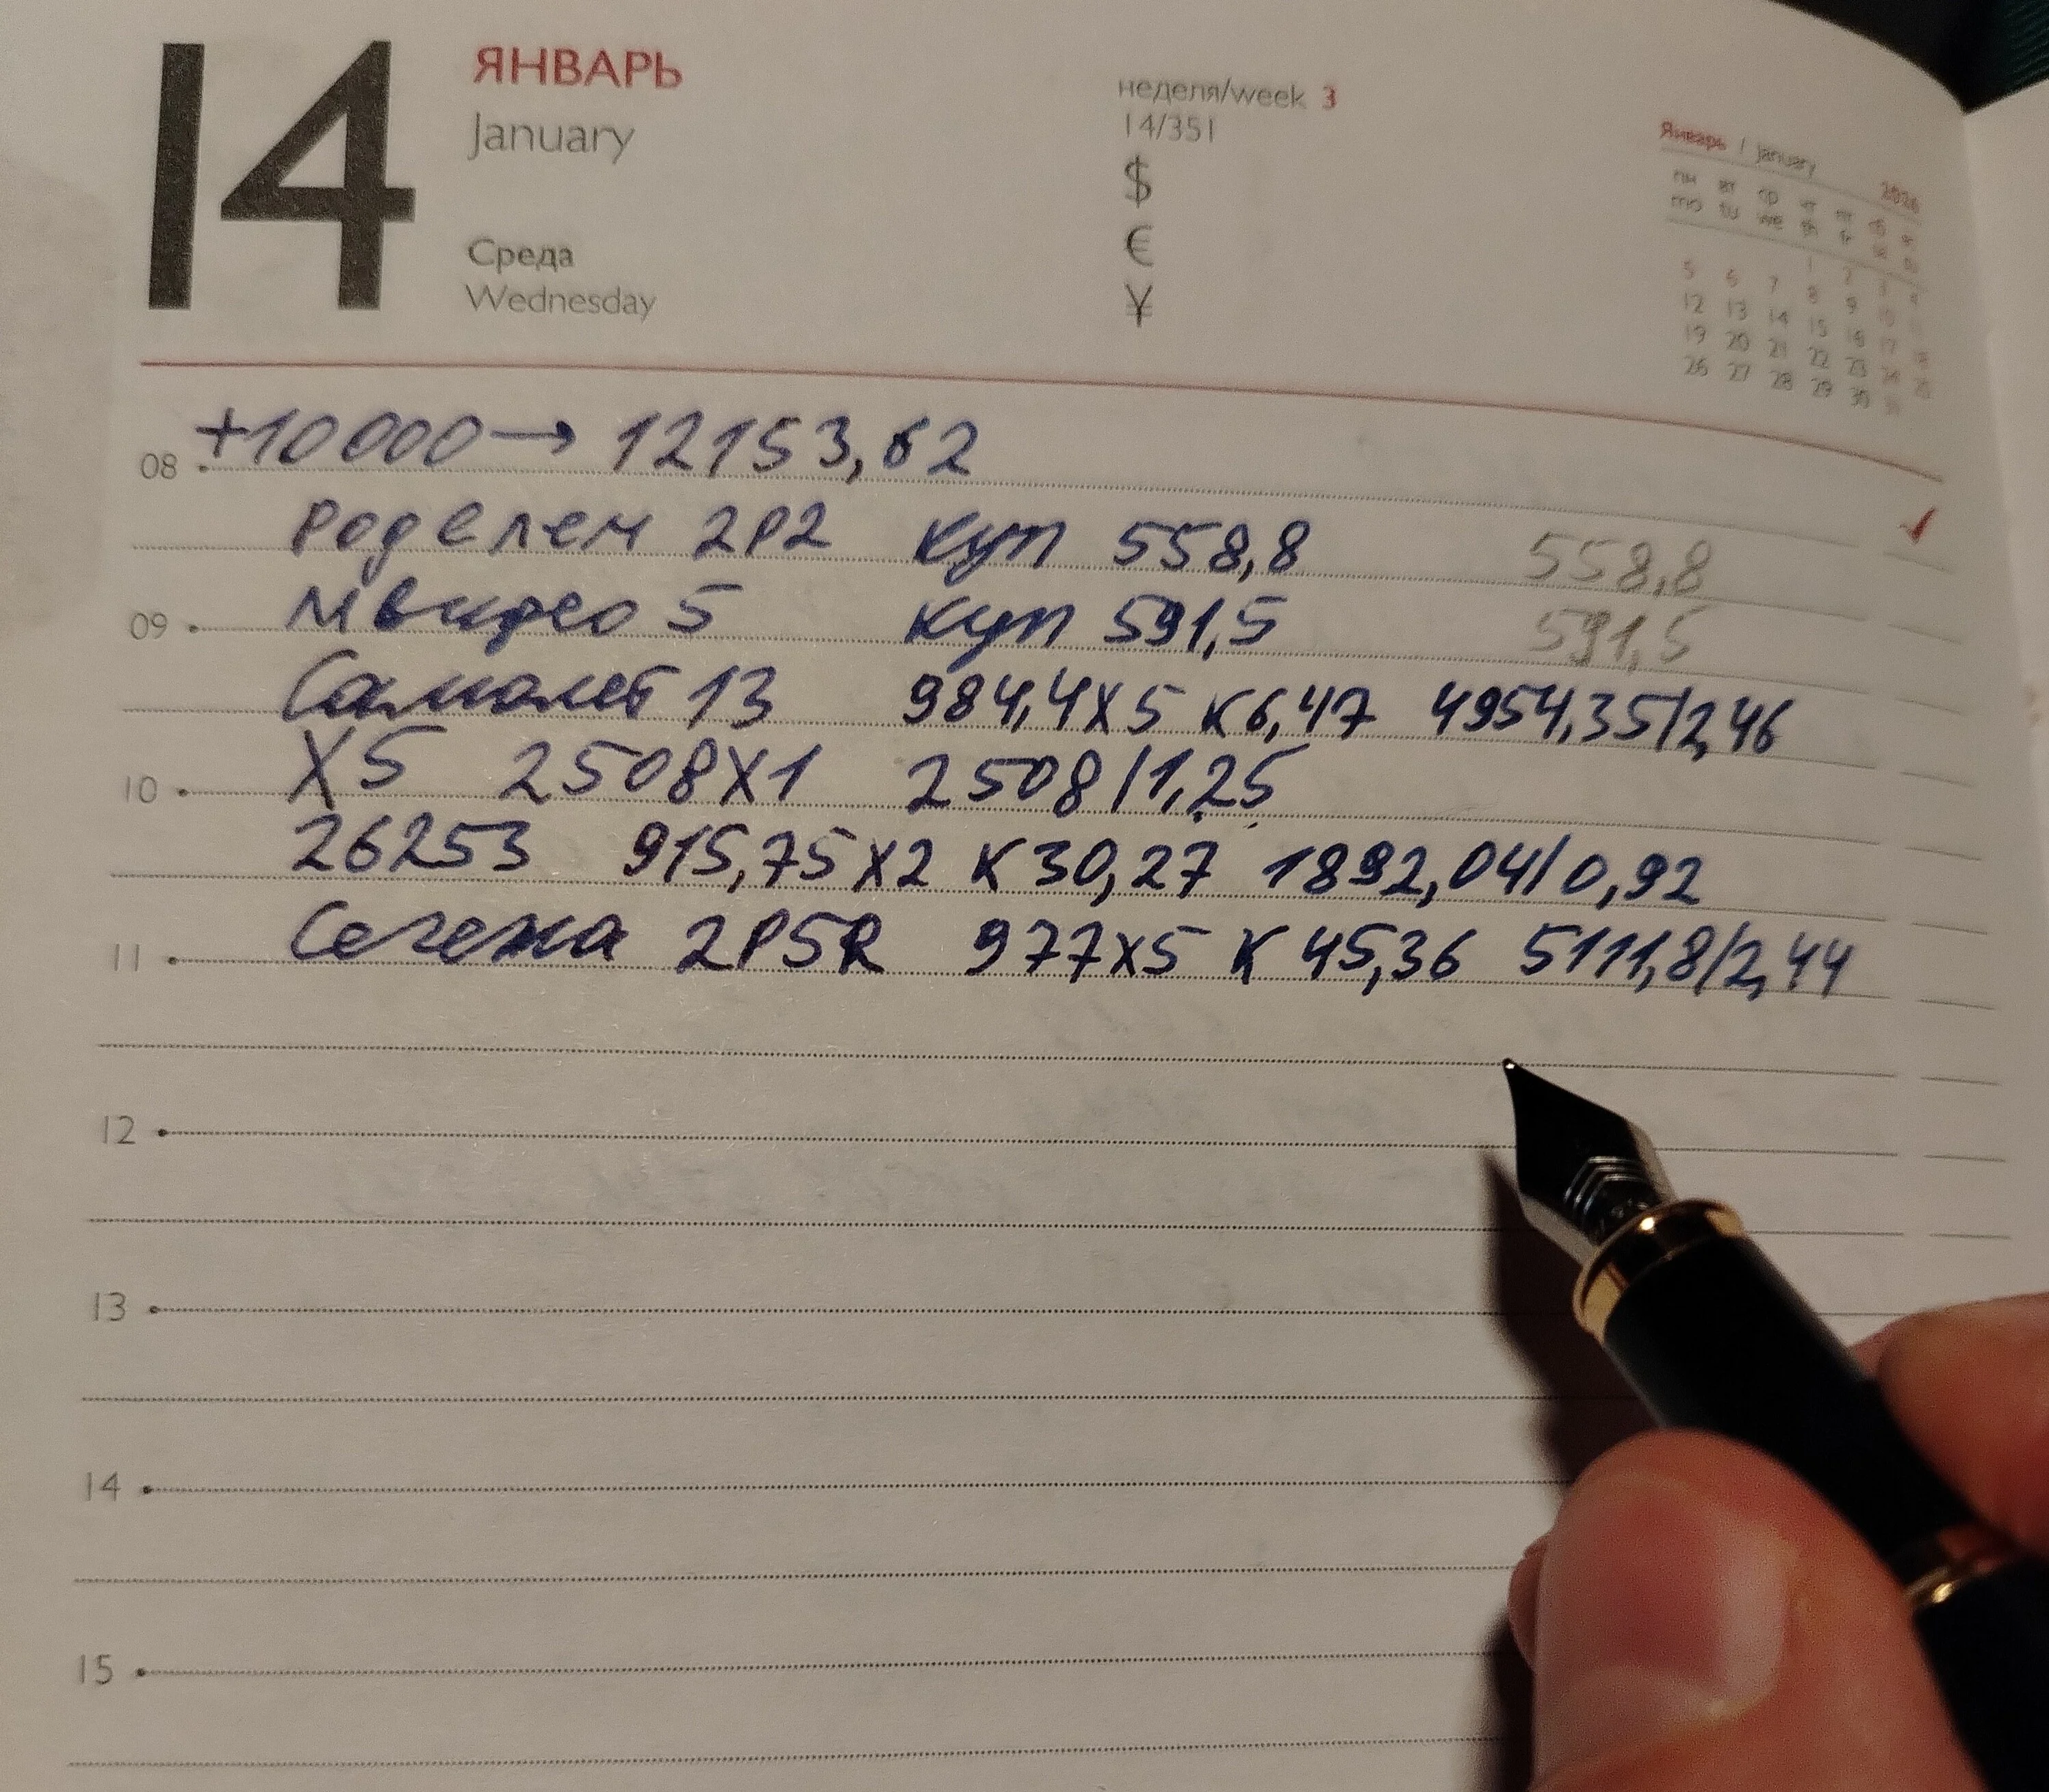 14
ЯНВАРЬ
January
Среда
Wednesday
неделя/week 3
14/351
$
€
¥
Январь / January 2026
пн вт ср чт пт сб вс
mo tu we th fr sa su
1 2 3 4
5 6 7 8 9 10 11
12 13 14 15 16 17 18
19 20 21 22 23 24 25
26 27 28 29 30 31
+10000 → 12153,62
08
Роделен 2P2 куп 558,8 558,8
09 Мвидео 5 куп 591,5 591,5
Самолет 13 984,4x5 к6,47 4954,35/2,46
10 X5 2508x1 2508/1,25
26253 915,75x2 К30,27 1892,04/0,92
11 Сегежа 2P5R 977x5 К 45,36 5111,8/2,44
12
13
14
15